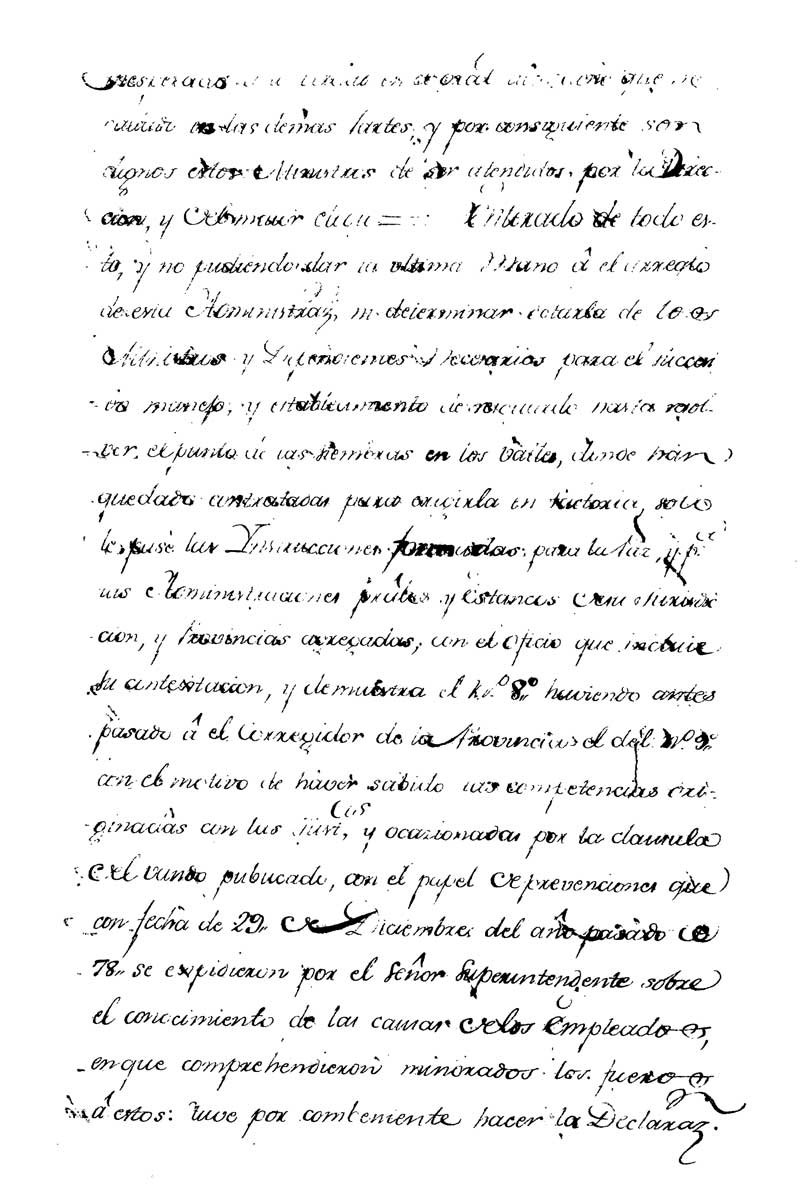 en gral que se
en las demas Partes, y por consiguiente son
dignos estos Ministros de ser atendidos, por la Direc-
cion, y = Enterado de todo es-
to, y no pudiendo dar la ultima Mano â el arreglo
de esta Administraz.n, ni determinar de los
Ministros y Dependientes Necesarios para el succesi
vo manejo, y establecimiento de resguardo hasta resol-
ver, el punto de las siembras en los Valles, donde han
quedado contratadas para en factoria, solo
le pasé las Ynstrucciones formadas para la fac.a, y p.a
las Administraciones prâles y Estancos de su Jurisdic
cion, y Provincias agregadas, con el oficio que incluie
su contextacion, y demuestra el N.º 8.º haviendo antes
pasado â el Corregidor de la Provincia el del N.º 9.º
con el motivo de haver sabido las competencias ori-
ginadas con las Justicias, y ocazionadas por la clausula
del vando publicado, con el papel de prevenciones que
con fecha de 29,, de Diciembre del año pasado de
78,, se expidieron por el Señor Superintendente sobre
el conocimiento de las causas de los Empleados,
en que comprehendieron minorados los fueros
â estos: tuve por combeniente hacer la Declaraz.n